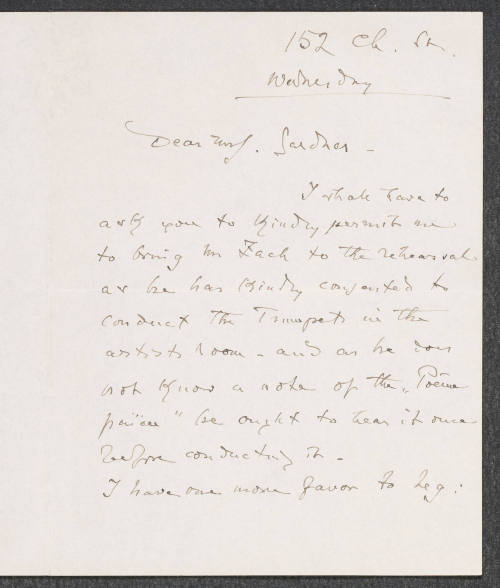 152 Ch. Str.
Wednesday
Dear Mrs. Gardner -
I shall have to
ask you to kindly permit me
to bring Mr Zach to the rehearsal
as he has kindly consented to
conduct the Trumpets in the
artists room - and as he does
not know a note of the „Poëme
païen" he ought to hear it once
before conducting it -
I have one more favor to beg: